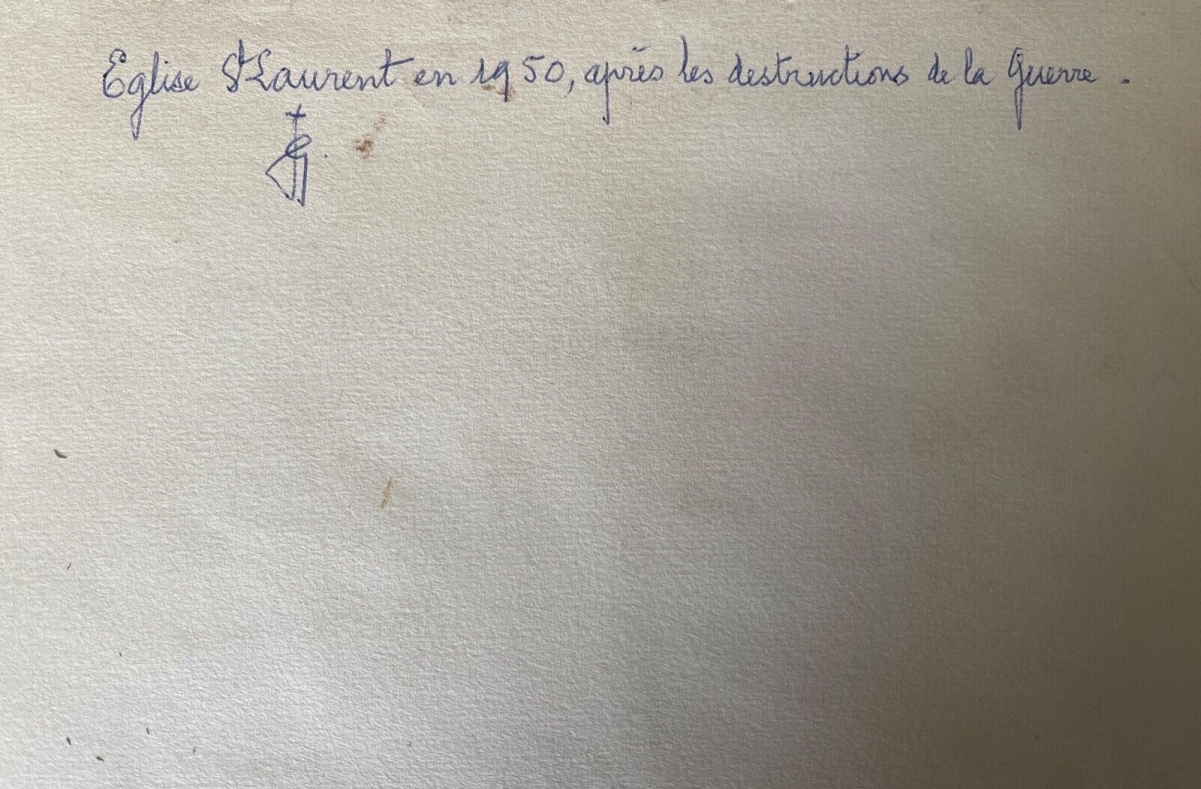 Eglise St Laurent en 1950, après les destructions de la Guerre.